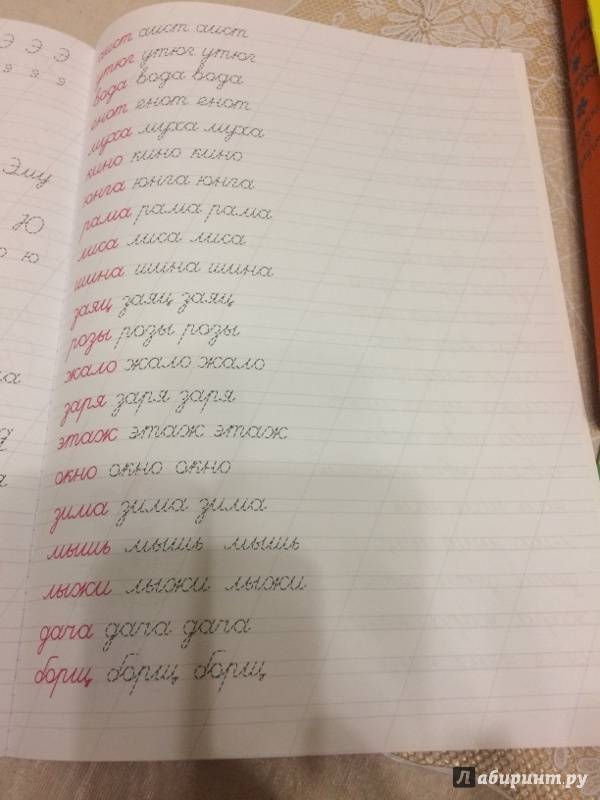 Э Э Э
э э э
Эму
Ю
ю
аист аист аист
утюг утюг утюг
вода вода вода
енот енот енот
муха муха муха
кино кино кино
юнга юнга юнга
рама рама рама
лиса лиса лиса
шина шина шина
заяц заяц заяц
розы розы розы
жало жало жало
заря заря заря
этаж этаж этаж
окно окно окно
зима зима зима
мышь мышь мышь
лыжи лыжи лыжи
дача дача дача
борщ борщ борщ
Лабиринт.ру